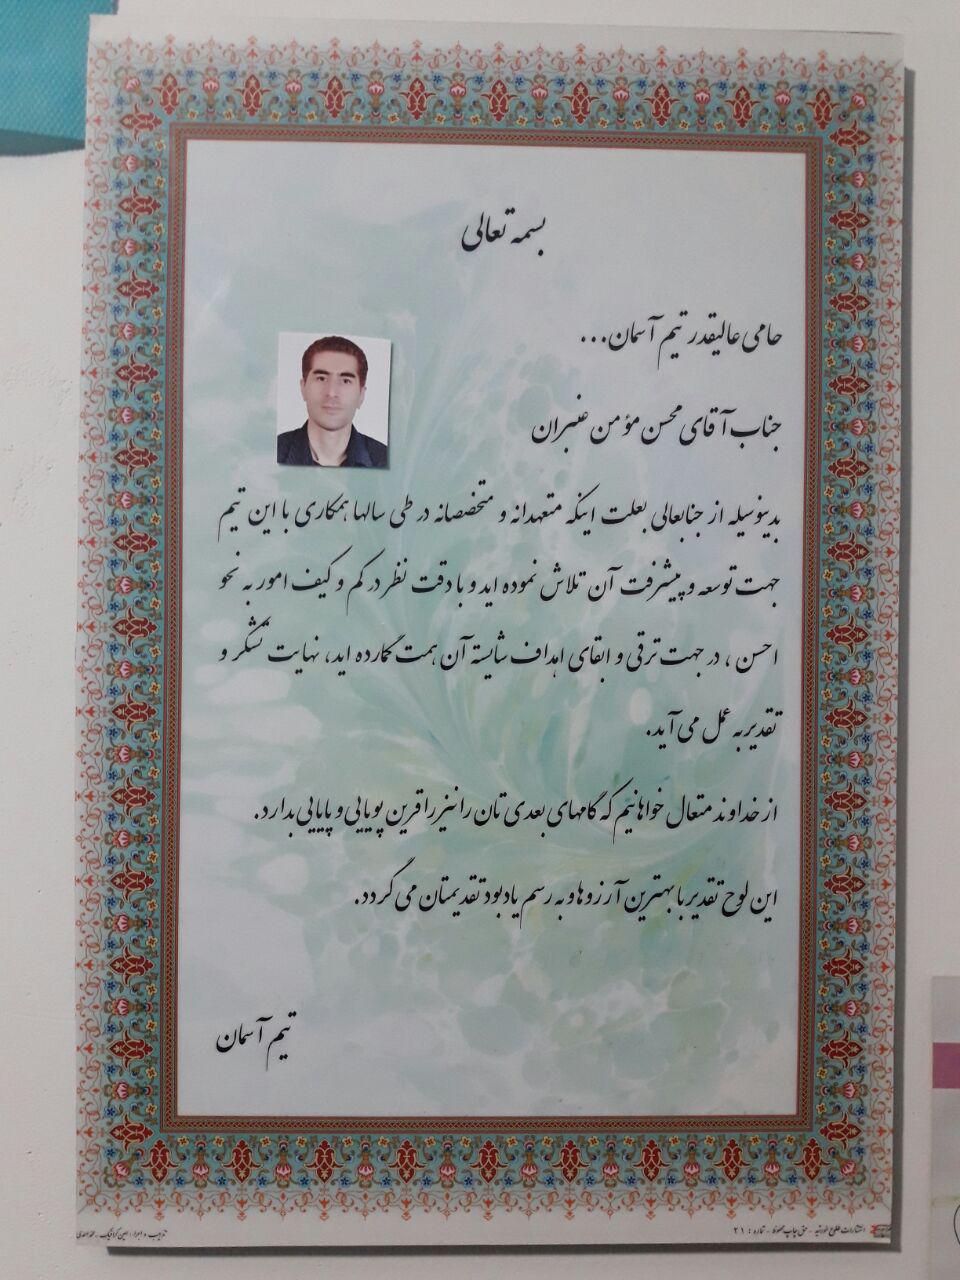 بسمه تعالی
حامی عالیقدر تیم آسمان...
جناب آقای محسن مؤمن عنبران
بدینوسیله از جنابعالی بعلت اینکه متعهدانه و متخصصانه در طی سالها همکاری با این تیم
جهت توسعه و پیشرفت آن تلاش نموده اید و با دقت نظر در کم و کیف امور به نحو
احسن ، در جهت ترقی و ابقای اهداف شایسته آن همت گمارده اید، نهایت تشکر و
تقدیر به عمل می آید.
از خداوند متعال خواهانیم که گامهای بعدی تان را نیز را قرین پویایی و پایایی بدارد.
این لوح تقدیر با بهترین آرزوها و به رسم یادبود تقدیمتان می گردد.
تیم آسمان
انتشارات طلوع خورشید - حق چاپ محفوظ - شماره : ۲۱